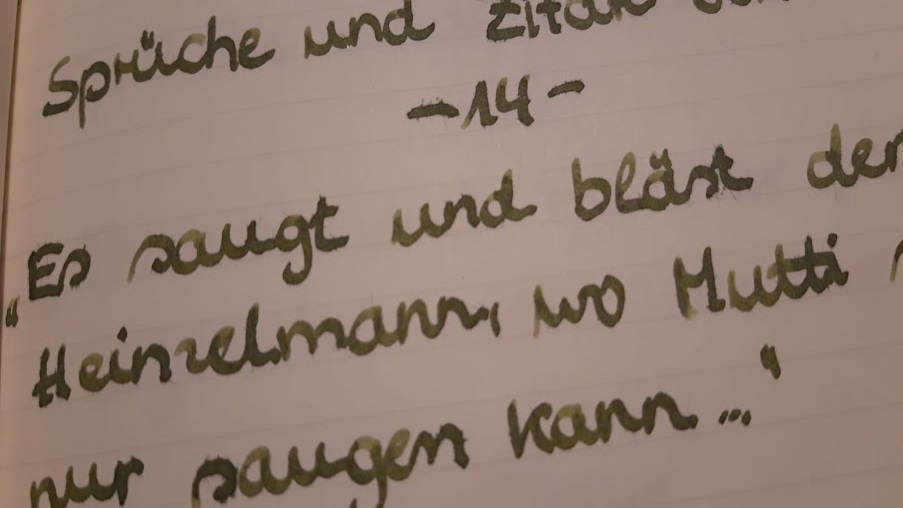 Sprüche und Zitate
-14-
„Es saugt und bläst der
Heinzelmann, wo Mutti
nur saugen kann..."